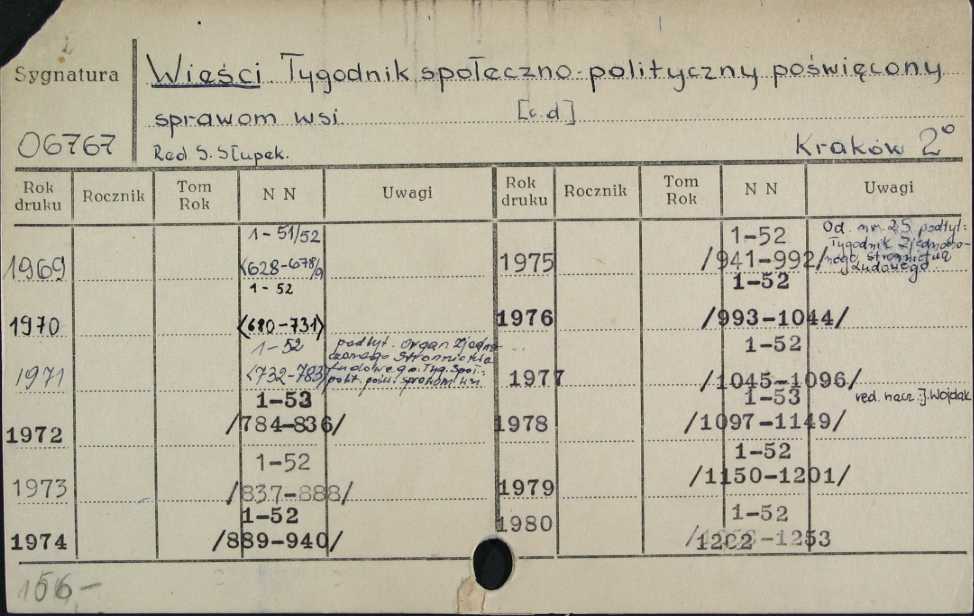 Sygnatura
06767
Wieści Tygodnik społeczno-polityczny poświęcony
sprawom wsi [c.d]
Red S. Słupek. Kraków 2°
Rok druku Rocznik Tom Rok N N Uwagi Rok druku Rocznik Tom Rok N N Uwagi
1-51/52
1969 <628-678/9
1-52
1970 <680-731>
1-52
1971 <732-783> podtyt. Organ Zjedno-
czonego Stronnictwa
Ludowego. Tyg. społ.-
polit. pośw. sprawom wsi
1-53
1972 /784-836/
1-52
1973 /837-888/
1-52
1974 /889-940/
1-52
1975 /941-992/ Od nru 25 podtyt.:
Tygodnik Zjednoczo-
nego Stronnictwa
Ludowego
1-52
1976 /993-1044/
1-52
1977 /1045-1096/
1-53
1978 /1097-1149/ red. nacz. J. Wojdak
1-52
1979 /1150-1201/
1-52
1980 /1202-1253
156-